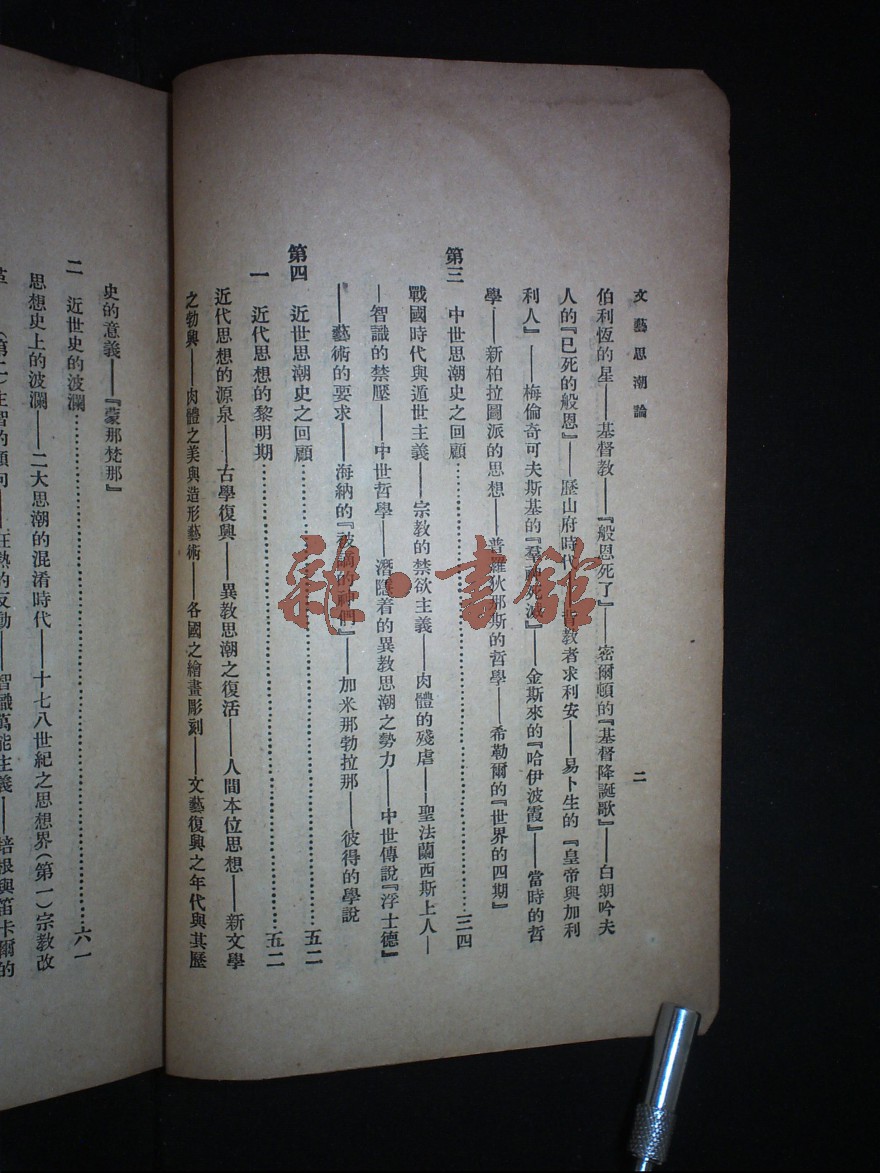 文藝思潮論
二
伯利恆的星——基督教——『般恩死了』——密爾頓的『基督降誕歌』——白朗吟夫
人的『已死的般恩』——歷山府時代——背教者求利安——易卜生的『皇帝與加利
利人』——梅倫奇可夫斯基的『羣神死滅』——金斯來的『哈伊波霞』——當時的哲
學——新柏拉圖派的思想——普羅狄那斯的哲學——希勒爾的『世界的四期』
第三 中世思潮史之回顧……三四
戰國時代與遁世主義——宗教的禁欲主義——肉體的殘虐——聖法蘭西斯上人—
—智識的禁壓——中世哲學——潛隱着的異教思潮之勢力——中世傳說『浮士德』
——藝術的要求——海納的『被謫的神們』——加米那勃拉那——彼得的學說
第四 近世思潮史之回顧……五二
一 近代思想的黎明期……五二
近代思想的源泉——古學復興——異教思潮之復活——人間本位思想——新文學
之勃興——肉體之美與造形藝術——各國之繪畫彫刻——文藝復興之年代與其歷
史的意義——『蒙那梵那』
二 近世史的波瀾……六一
思想史上的波瀾——二大思潮的混淆時代——十七八世紀之思想界（第一）宗教改
革（第二）主智的傾向——狂熱的反動——智識萬能主義——培根與笛卡爾的
雜·書館